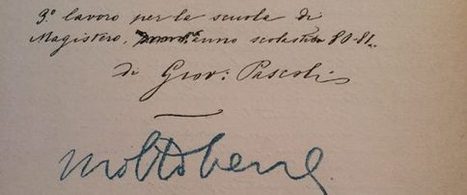 3º lavoro per la scuola di
Magistero, anno scolastico 80-81.
di Giov: Pascoli
Molto bene